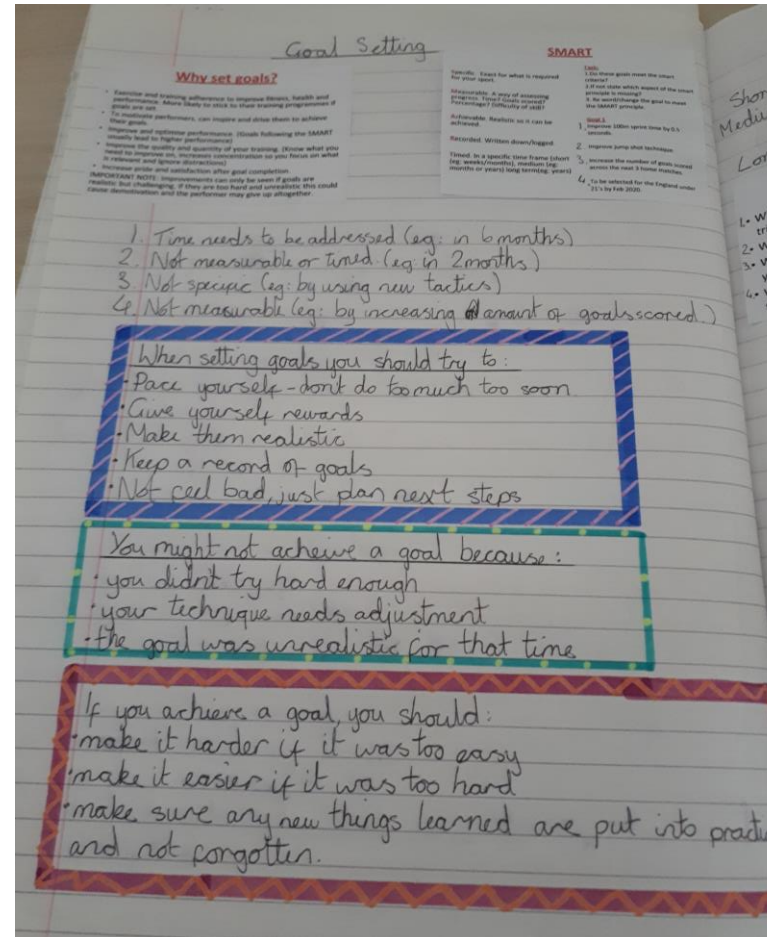 Goal Setting
Why set goals?
• Exercise and training adherence to improve fitness, health and
performance. More likely to stick to their training programmes if
goals are set.
• To motivate performers, can inspire and drive them to achieve
their goals.
• Improve and optimise performance. (Goals following the SMART
usually lead to higher performance)
• Improve the quality and quantity of your training. (Know what you
need to improve on, increases concentration so you focus on what
is relevant and ignore distractions)
• Increase pride and satisfaction after goal completion.
IMPORTANT NOTE: Improvements can only be seen if goals are
realistic but challenging, if they are too hard and unrealistic this could
cause demotivation and the performer may give up altogether.
SMART
Specific. Exact for what is required
for your sport.
Measurable. A way of assessing
progress. Time? Goals scored?
Percentage? Difficulty of skill?
Achievable. Realistic so it can be
achieved.
Recorded. Written down/logged.
Timed. In a specific time frame (short
(eg. weeks/months), medium (eg.
months or years) long term(eg. years)
Task:
1.Do these goals meet the smart
criteria?
2.If not state which aspect of the smart
principle is missing?
3. Re word/change the goal to meet
the SMART principle.
1. Improve 100m sprint time by 0.5
seconds.
2. Improve jump shot technique.
3. Increase the number of goals scored
across the next 3 home matches.
4. To be selected for the England under
21's by Feb 2020.
1. Time needs to be addressed (eg: in 6 months)
2. Not measurable or timed (eg in 2months)
3 Not specific (eg: by using new tactics)
4. Not measurable (eg: by increasing amount of goals scored.)
When setting goals you should try to:
·Pace yourself - don't do too much too soon
·Give yourself rewards
·Make them realistic
·Keep a record of goals
·Not feel bad, just plan next steps
You might not acheive a goal because:
·you didn't try hard enough
·your technique needs adjustment
·the goal was unrealistic for that time
If you achieve a goal, you should:
·make it harder if it was too easy
·make it easier if it was too hard
·make sure any new things learned are put into
and not forgotten.